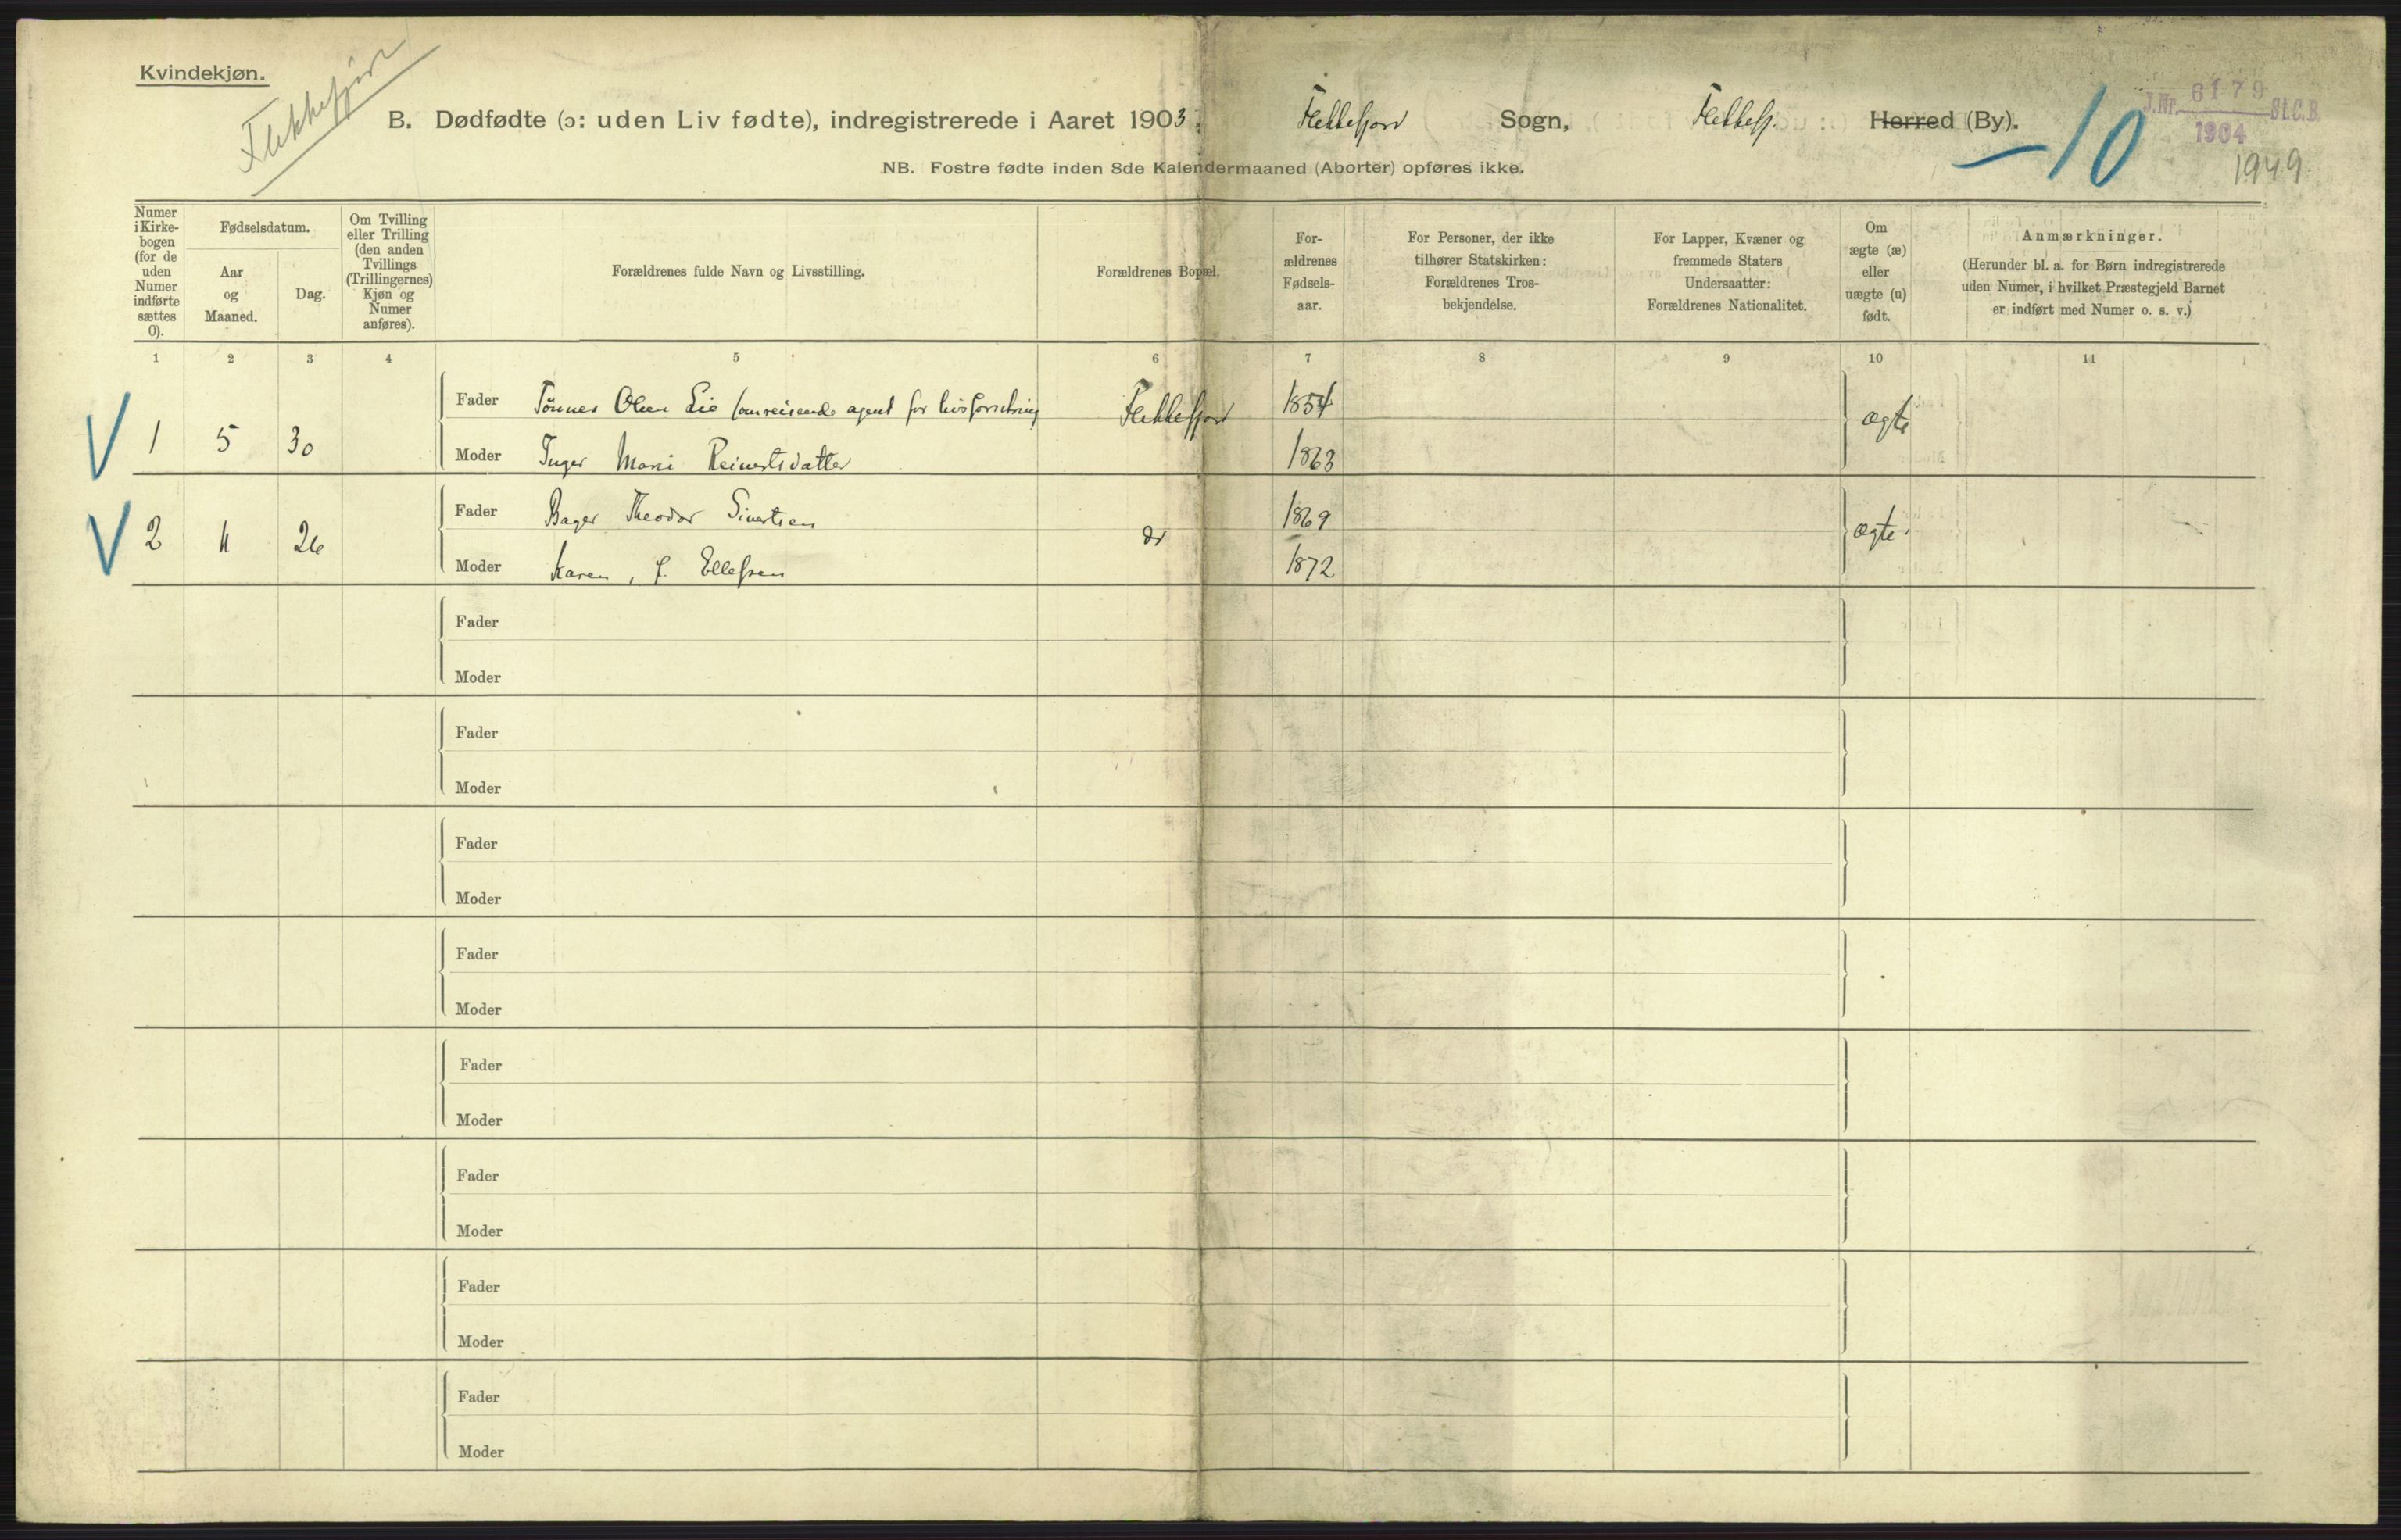 Kvindekjøn.
Flekkefjord
B. Dødfødte (ɔ: uden Liv fødte), indregistrerede i Aaret 1903. Flekkefjord Sogn, Flekkefj. Herred (By).
J.Nr. 6179 St.C.B.
1904
-10
1949
NB. Fostre fødte inden 8de Kalendermaaned (Aborter) opføres ikke.
Numer
i Kirke-
bogen
(for de
uden
Numer
indførte
sættes
0).
Fødselsdatum.
Aar
og
Maaned.
Dag.
Om Tvilling
eller Trilling
(den anden
Tvillings
(Trillingernes)
Kjøn og
Numer
anføres).
Forældrenes fulde Navn og Livsstilling.
Forældrenes Bopæl.
For-
ældrenes
Fødsels-
aar.
For Personer, der ikke
tilhører Statskirken:
Forældrenes Tros-
bekjendelse.
For Lapper, Kvæner og
fremmede Staters
Undersaatter:
Forældrenes Nationalitet.
Om
ægte (æ)
eller
uægte (u)
født.
Anmærkninger.
(Herunder bl. a. for Børn indregistrerede
uden Numer, i hvilket Præstegjeld Barnet
er indført med Numer o. s. v.)
1 2 3 4 5 6 7 8 9 10 11
V 1 5 30
Fader Tönnes Olsen Lie (omreisende agent for livsforsikring Flekkefjord 1854 ægte
Moder Inger Marie Reinertsdatter 1863
V 2 11 26
Fader Bager Theodor Sivertsen do 1869 ægte.
Moder Karen, f. Ellefsen 1872
Fader
Moder
Fader
Moder
Fader
Moder
Fader
Moder
Fader
Moder
Fader
Moder
Fader
Moder
Fader
Moder